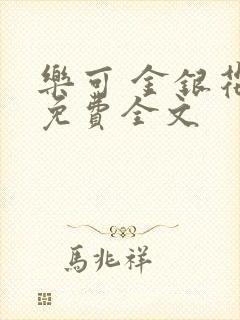 樂可 金銀花
免費全文
馬兆祥